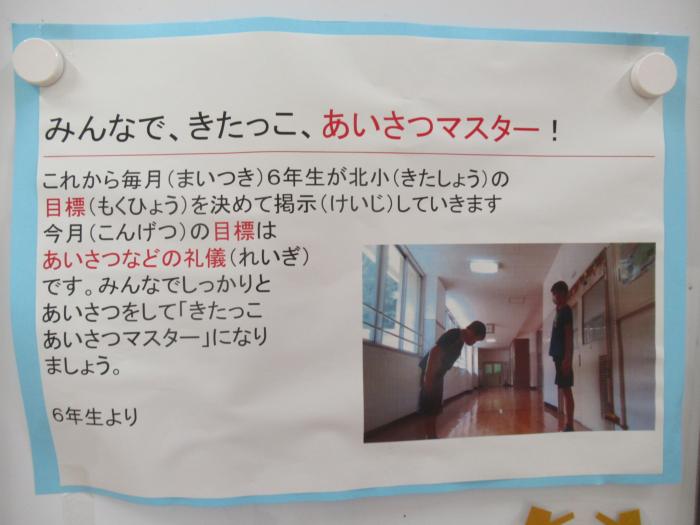 みんなで、きたっこ、あいさつマスター！
これから毎月（まいつき）６年生が北小（きたしょう）の
目標（もくひょう）を決めて掲示（けいじ）していきます
今月（こんげつ）の目標は
あいさつなどの礼儀（れいぎ）
です。みんなでしっかりと
あいさつをして「きたっこ
あいさつマスター」になり
ましょう。
６年生より